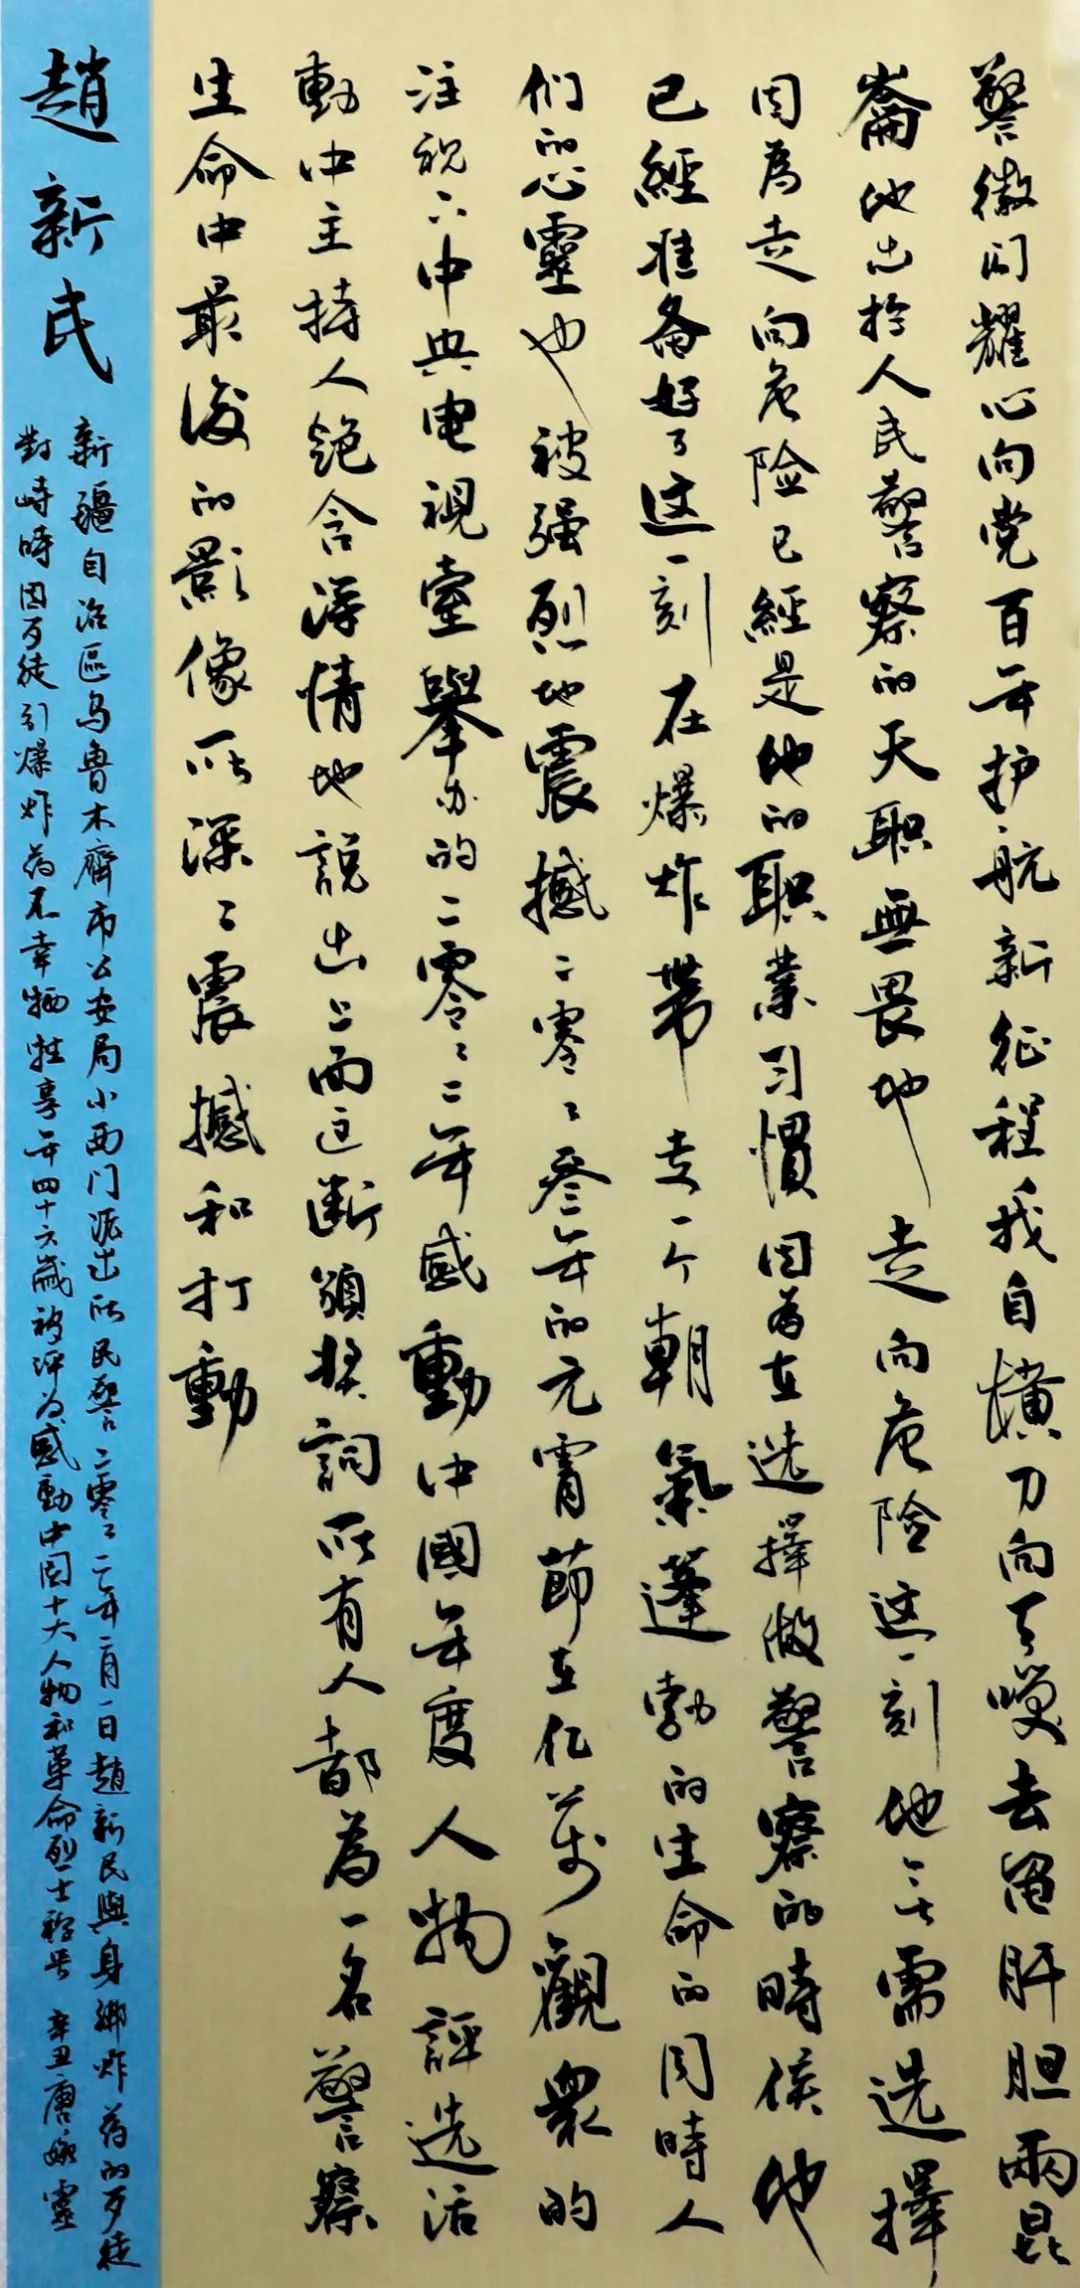 警徽闪耀心向党百年护航新征程我自横刀向天嘆去留肝胆兩昆
崙他忠於人民警察的天职無畏地走向危险这一刻他无需选擇
因為走向危险已經是他的职業习慣因為在选擇做警察的時候他
已經准备好了这一刻在爆炸帶走一个朝氣蓬勃的生命的同時人
们的心靈也被强烈地震撼二零二叁年的元宵節在亿萬觀衆的
注視下中央电視臺舉办的二零二二年感動中國年度人物評选活
動中主持人飽含深情地說出上面这断頒奖詞所有人都為一名警察
生命中最後的影像所深深震撼和打動
趙新民
新疆自治區乌鲁木齊市公安局小西门派出所民警二零二二年二月一日趙新民與身绑炸药的歹徒
對峙時因歹徒引爆炸药不幸牺牲享年四十六歲被评为感動中国十大人物和革命烈士称号 辛丑唐靈